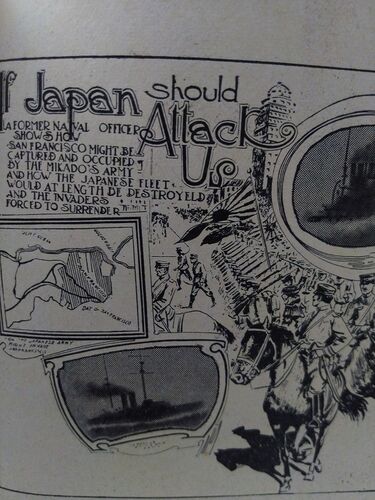 If Japan should
Attack
Us
A FORMER NAVAL OFFICER
SHOWS HOW
SAN FRANCISCO MIGHT BE
CAPTURED AND OCCUPIED
BY THE MIKADO'S ARMY
AND HOW THE JAPANESE FLEET
WOULD AT LENGTH BE DESTROYED
AND THE INVADERS
FORCED TO SURRENDER
BAY OF SAN FRANCISCO
THE JAPANESE ARMY
MIGHT INVADE
SAN FRANCISCO